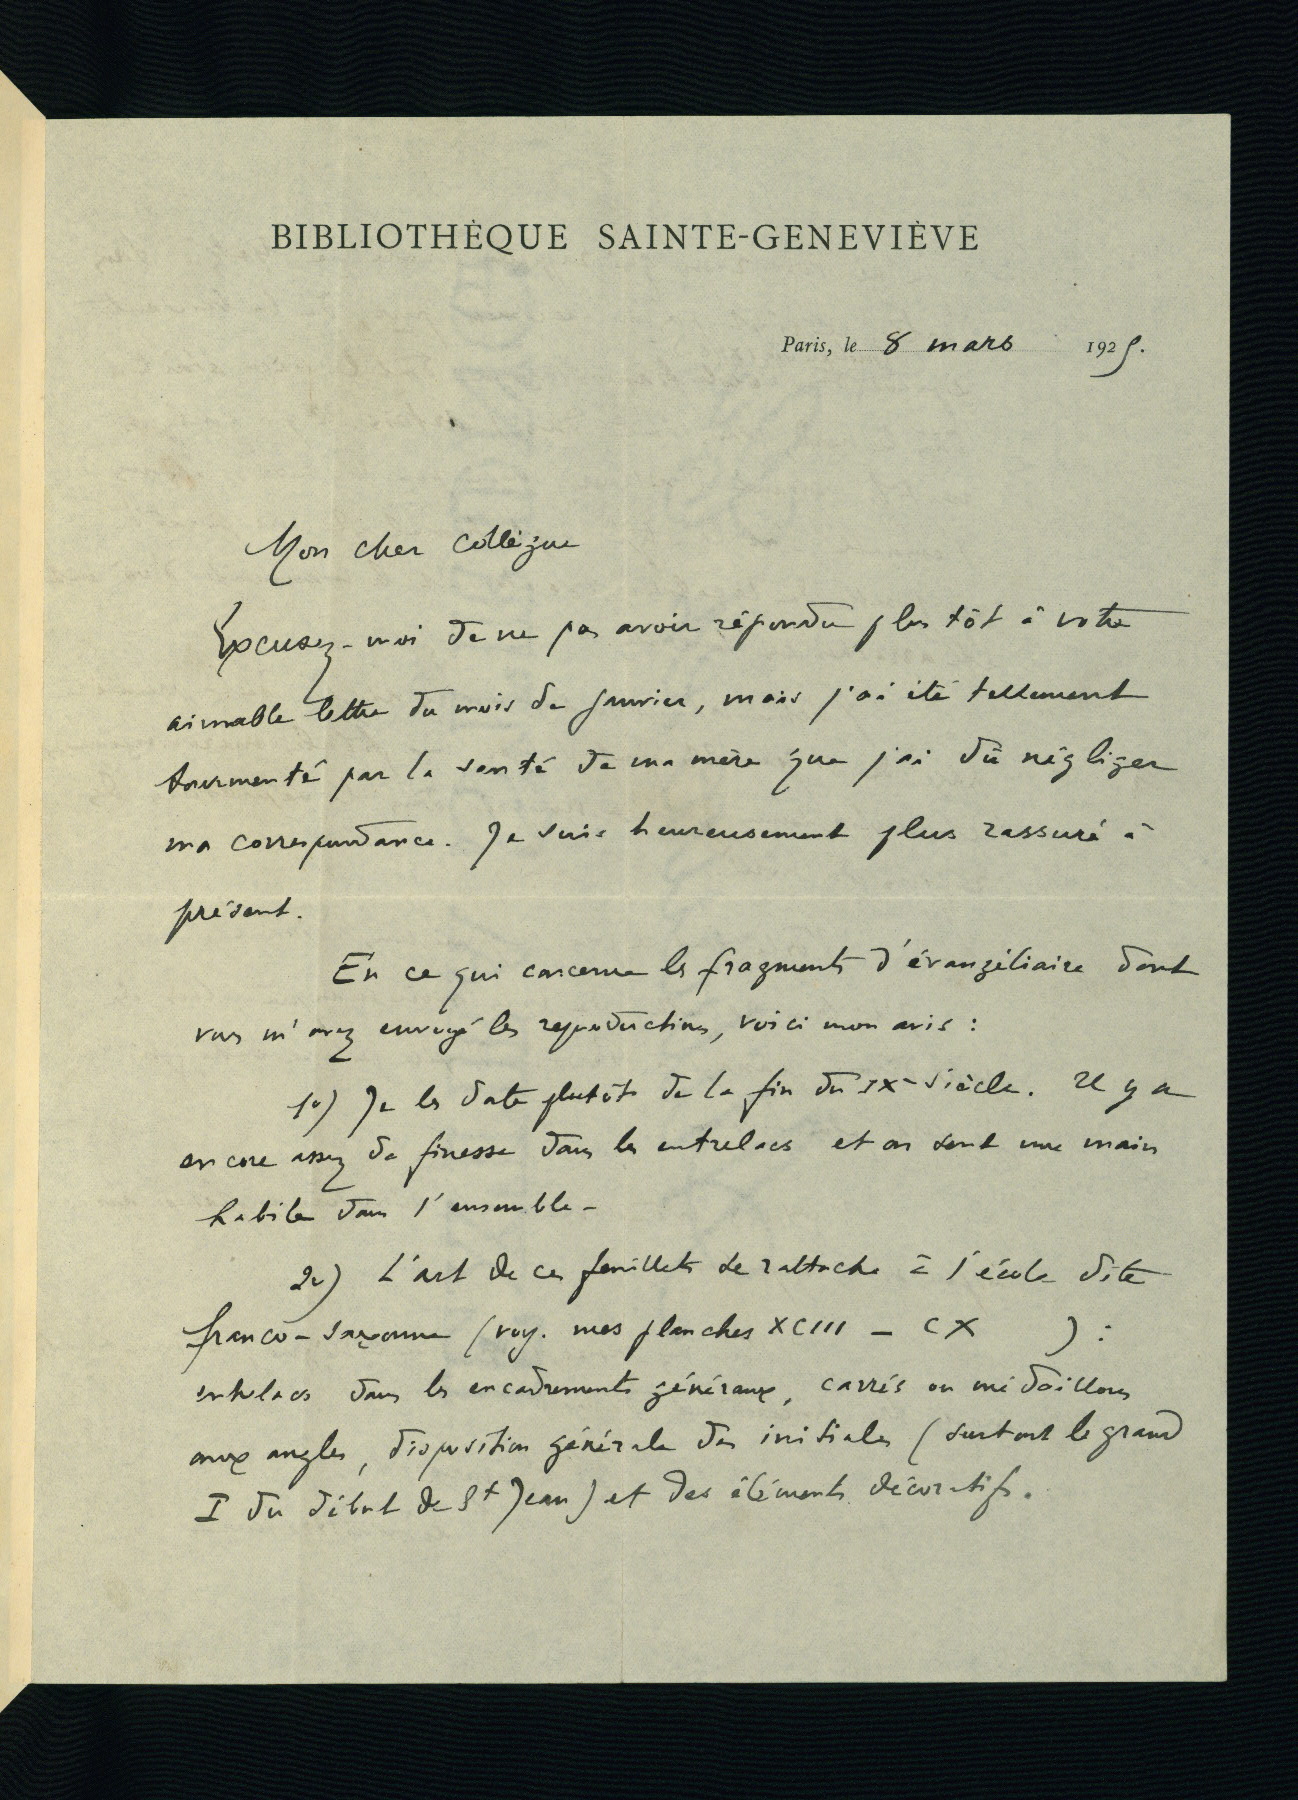 BIBLIOTHÈQUE SAINTE-GENEVIÈVE
Paris, le 8 mars 1925.
Mon cher Collègue
Excusez-moi de ne pas avoir répondu plus tôt à votre
aimable lettre du mois de Janvier, mais j'ai été tellement
tourmenté par la santé de ma mère que j'ai dû négliger
ma correspondance. Je suis heureusement plus rassuré à
présent.
En ce qui concerne les fragments d'évangéliaire dont
vous m'avez envoyé les reproductions, voici mon avis :
1º) Je les date plutôt de la fin du IXe siècle. Il y a
encore assez de finesse dans les entrelacs et on sent une main
habile dans l'ensemble -
2º) L'art de ces feuillets se rattache à l'école dite
franco-saxonne (voy. mes planches XCIII - CX ) :
entrelacs dans les encadrements généraux, carrés ou médaillons
aux angles, disposition générale des initiales (surtout le grand
I du début de St Jean) et des éléments décoratifs.